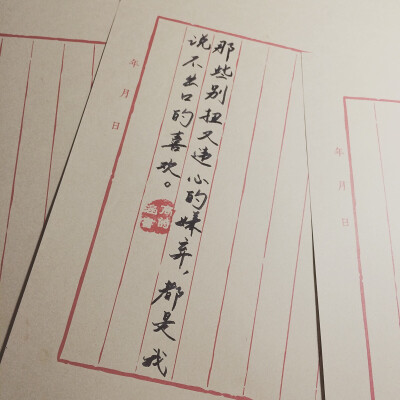 年月日
那些别扭又违心的嫌弃，都是我
说不出口的喜欢。
年月日